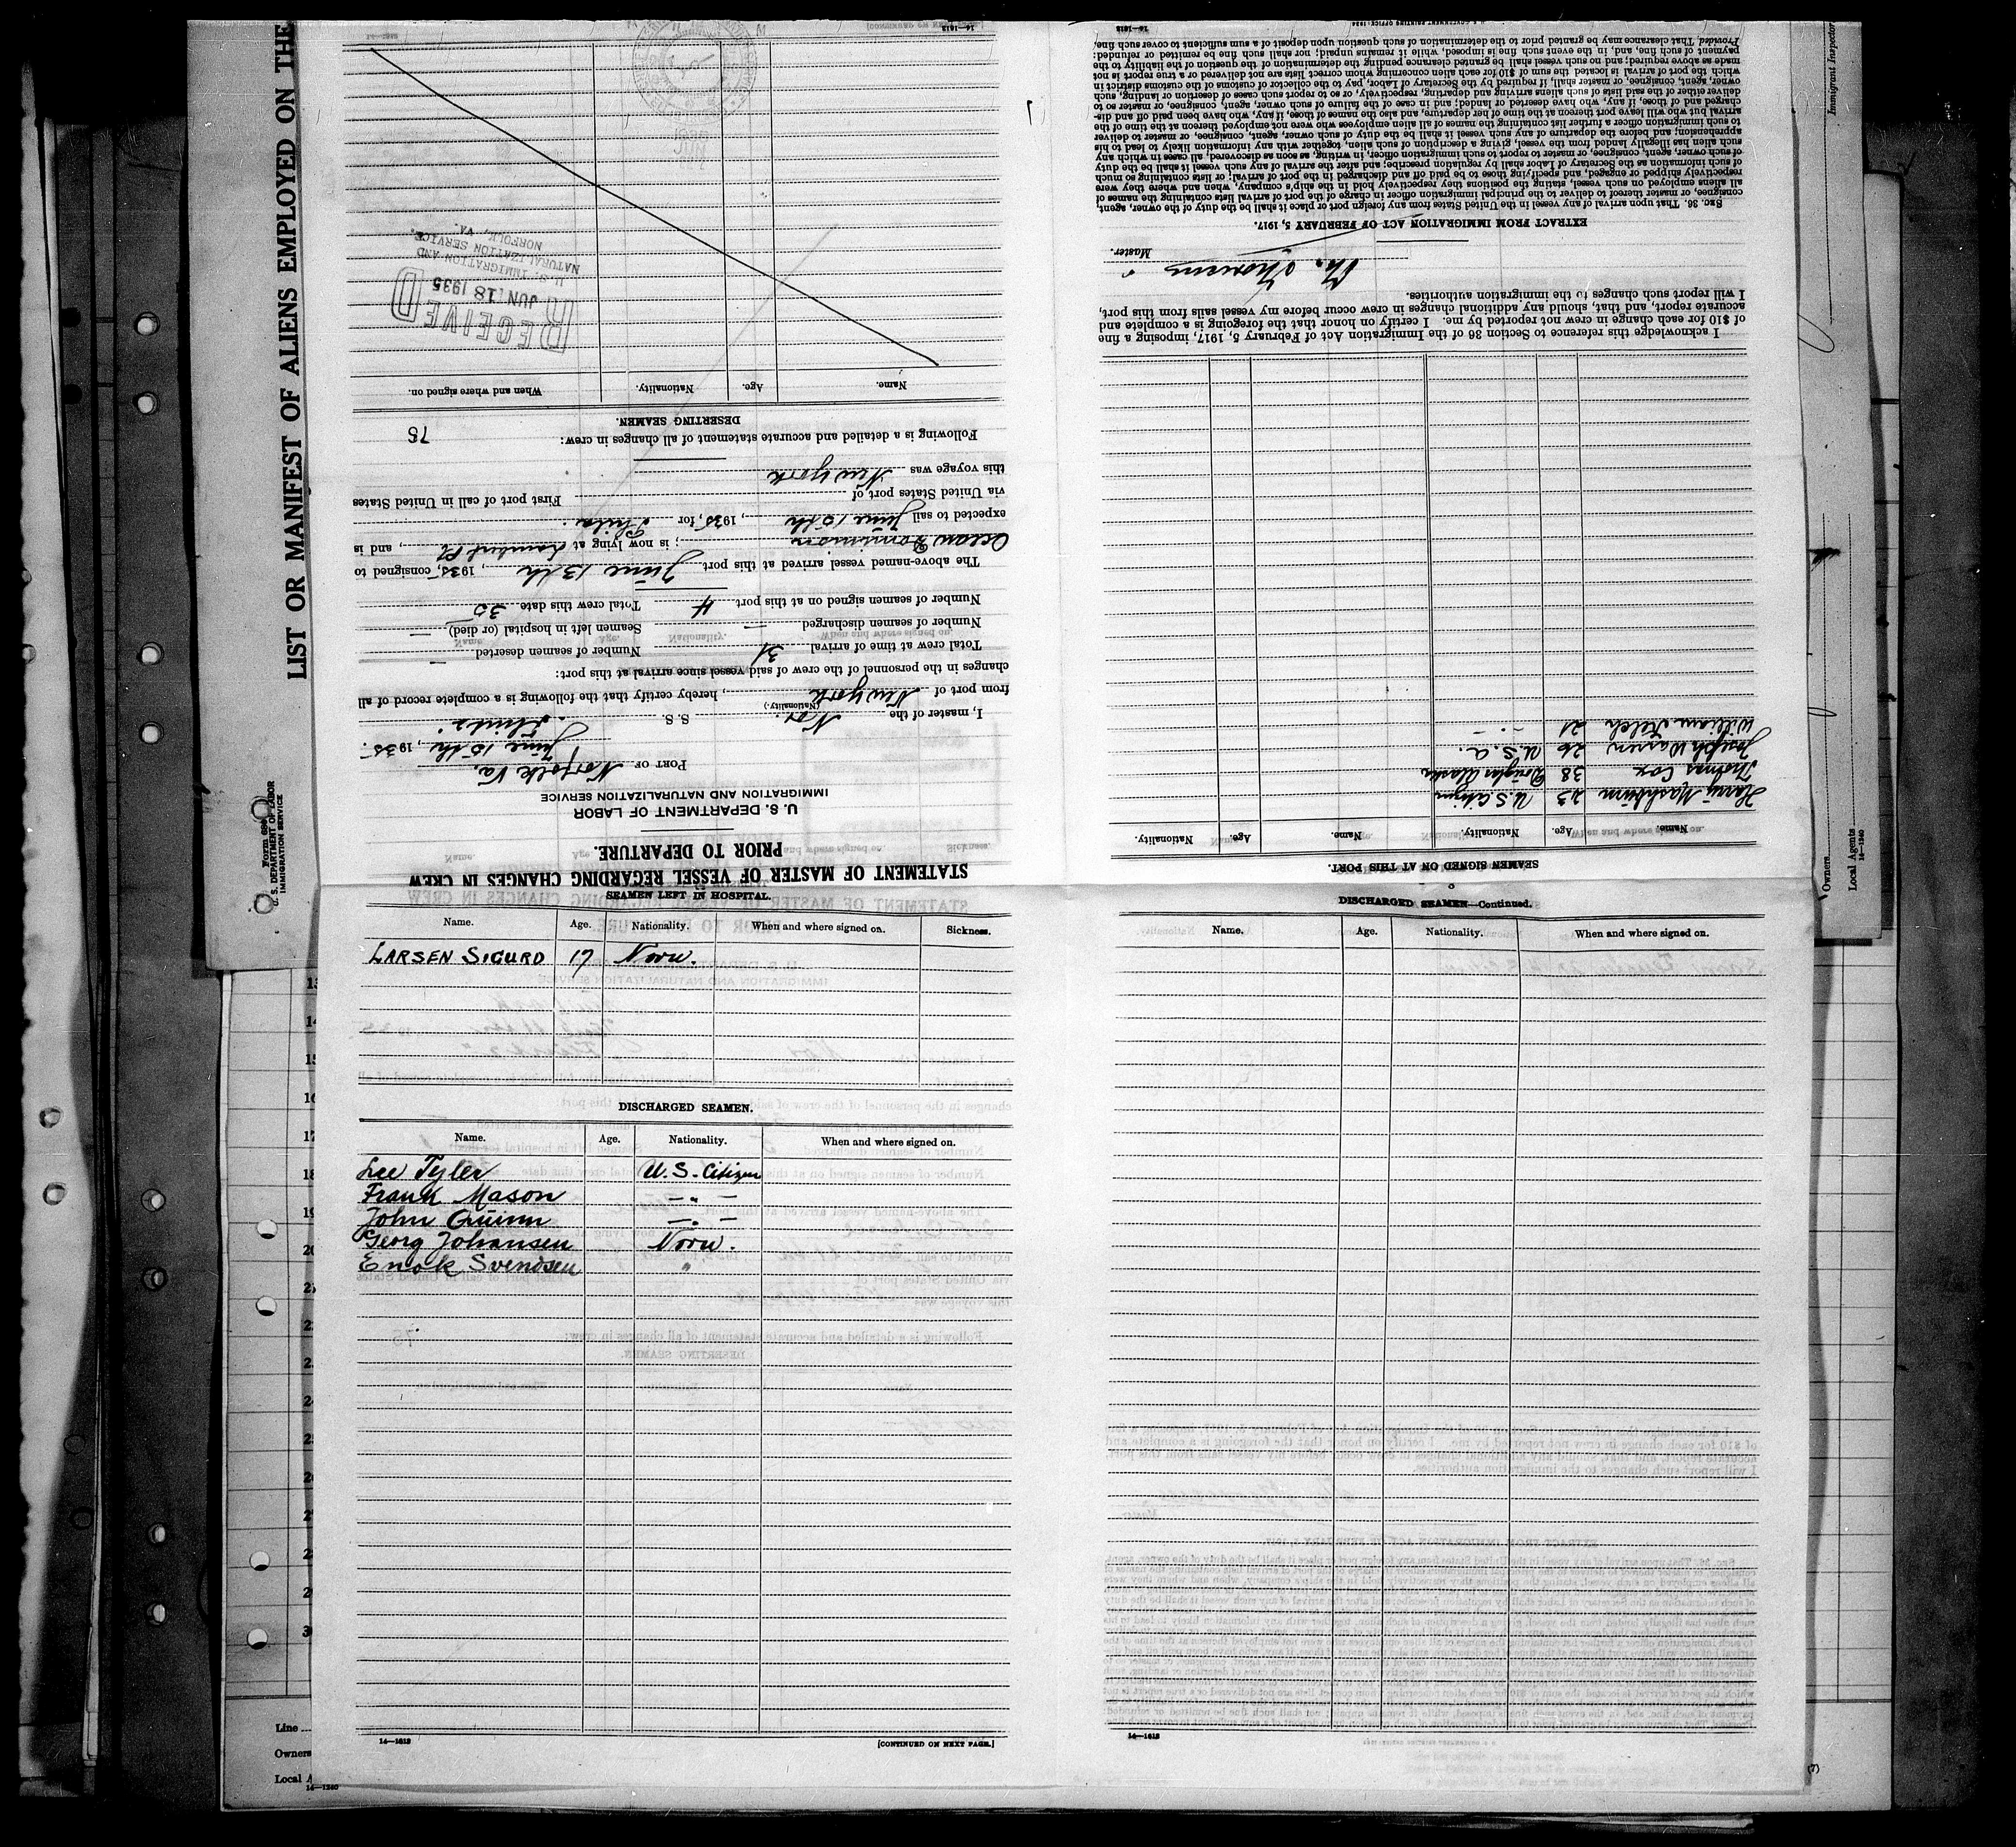 LIST OR MANIFEST OF ALIENS EMPLOYED ON THE
Form 689
U. S. DEPARTMENT OF LABOR
IMMIGRATION SERVICE
STATEMENT OF MASTER OF VESSEL REGARDING CHANGES IN CREW
PRIOR TO DEPARTURE.
U. S. DEPARTMENT OF LABOR
IMMIGRATION AND NATURALIZATION SERVICE
PORT OF Norfolk Va.
June 15th, 1935.
I, master of the Nor. S. S.
(Nationality.)
from port of New York, hereby certify that the following is a complete record of all
changes in the personnel of the crew of said vessel since arrival at this port:
Total crew at time of arrival 31 Number of seamen deserted —
Number of seamen discharged — Seamen left in hospital (or died) —
Number of seamen signed on at this port 4 Total crew this date 35
The above-named vessel arrived at this port June 13th, 1935, consigned to
Ocean Dominion; is now lying at Lambert Pt, and is
expected to sail June 15th, 1935, for Phila.
via United States port of First port of call in United States
this voyage was New York
Following is a detailed and accurate statement of all changes in crew: 75
DESERTING SEAMEN.
Name. Age. Nationality. When and where signed on.
RECEIVED
JUN 18 1935
U. S. IMMIGRATION AND
NATURALIZATION SERVICE,
NORFOLK, VA.
14—1613
SEAMEN SIGNED ON AT THIS PORT.
Name. Age. Nationality. Name. Age. Nationality.
Harry Mashburn 23 U.S Citizen
Thomas Cox 38 Douglas Alaska
Joseph Warren 26 U.S.A.
William Kelch 21 -"-
I acknowledge this reference to Section 36 of the Immigration Act of February 5, 1917, imposing a fine
of $10 for each change in crew not reported by me. I certify on honor that the foregoing is a complete and
accurate report, and that, should any additional changes in crew occur before my vessel sails from this port,
I will report such changes to the immigration authorities.
Master.
EXTRACT FROM IMMIGRATION ACT OF FEBRUARY 5, 1917.
SEC. 36. That upon arrival of any vessel in the United States from any foreign port or place it shall be the duty of the owner, agent,
consignee, or master thereof to deliver to the principal immigration officer in charge of the port of arrival lists containing the names of
all aliens employed on such vessel, stating the positions they respectively hold in the ship's company, when and where they were
respectively shipped or engaged, and specifying those to be paid off and discharged in the port of arrival; or lists containing so much
of such information as the Secretary of Labor shall by regulation prescribe; and after the arrival of any such vessel it shall be the duty
of such owner, agent, consignee, or master to report to such immigration officer, in writing, as soon as discovered, all cases in which any
such alien has illegally landed from the vessel, giving a description of such alien, together with any information likely to lead to his
apprehension; and before the departure of any such vessel it shall be the duty of such owner, agent, consignee, or master to deliver
to such immigration officer a further list containing the names of all alien employees who were not employed thereon at the time of the
arrival but who will leave port thereon at the time of her departure, and also the names of those, if any, who have been paid off and dis-
charged and of those, if any, who have deserted or landed; and in case of the failure of such owner, agent, consignee, or master so to
deliver either of the said lists of such aliens arriving and departing, respectively, or so to report such cases of desertion or landing, such
owner, agent, consignee, or master shall, if required by the Secretary of Labor, pay to the collector of customs of the customs district in
which the port of arrival is located the sum of $10 for each alien concerning whom correct lists are not delivered or a true report is not
made as above required; and no such vessel shall be granted clearance pending the determination of the question of the liability to the
payment of such fine, and, in the event such fine is imposed, while it remains unpaid; nor shall such fine be remitted or refunded:
Provided, That clearance may be granted prior to the determination of such question upon deposit of a sum sufficient to cover such fine.
14—1613
Immigrant Inspector
Owners
Local Agents
14—1240
SEAMEN LEFT IN HOSPITAL.
Name. Age. Nationality. When and where signed on. Sickness.
LARSEN SIGURD 17 Norw.
DISCHARGED SEAMEN.
Name. Age. Nationality. When and where signed on.
Lee Tyler U.S. Citizen
Frank Mason — " —
John Quinn — " —
Georg Johansen Norw.
Enok Svendsen "
14—1613
[CONTINUED ON NEXT PAGE.]
DISCHARGED SEAMEN—Continued.
Name. Age. Nationality. When and where signed on.
14—1613
Line
Owners
Local A
14—1240